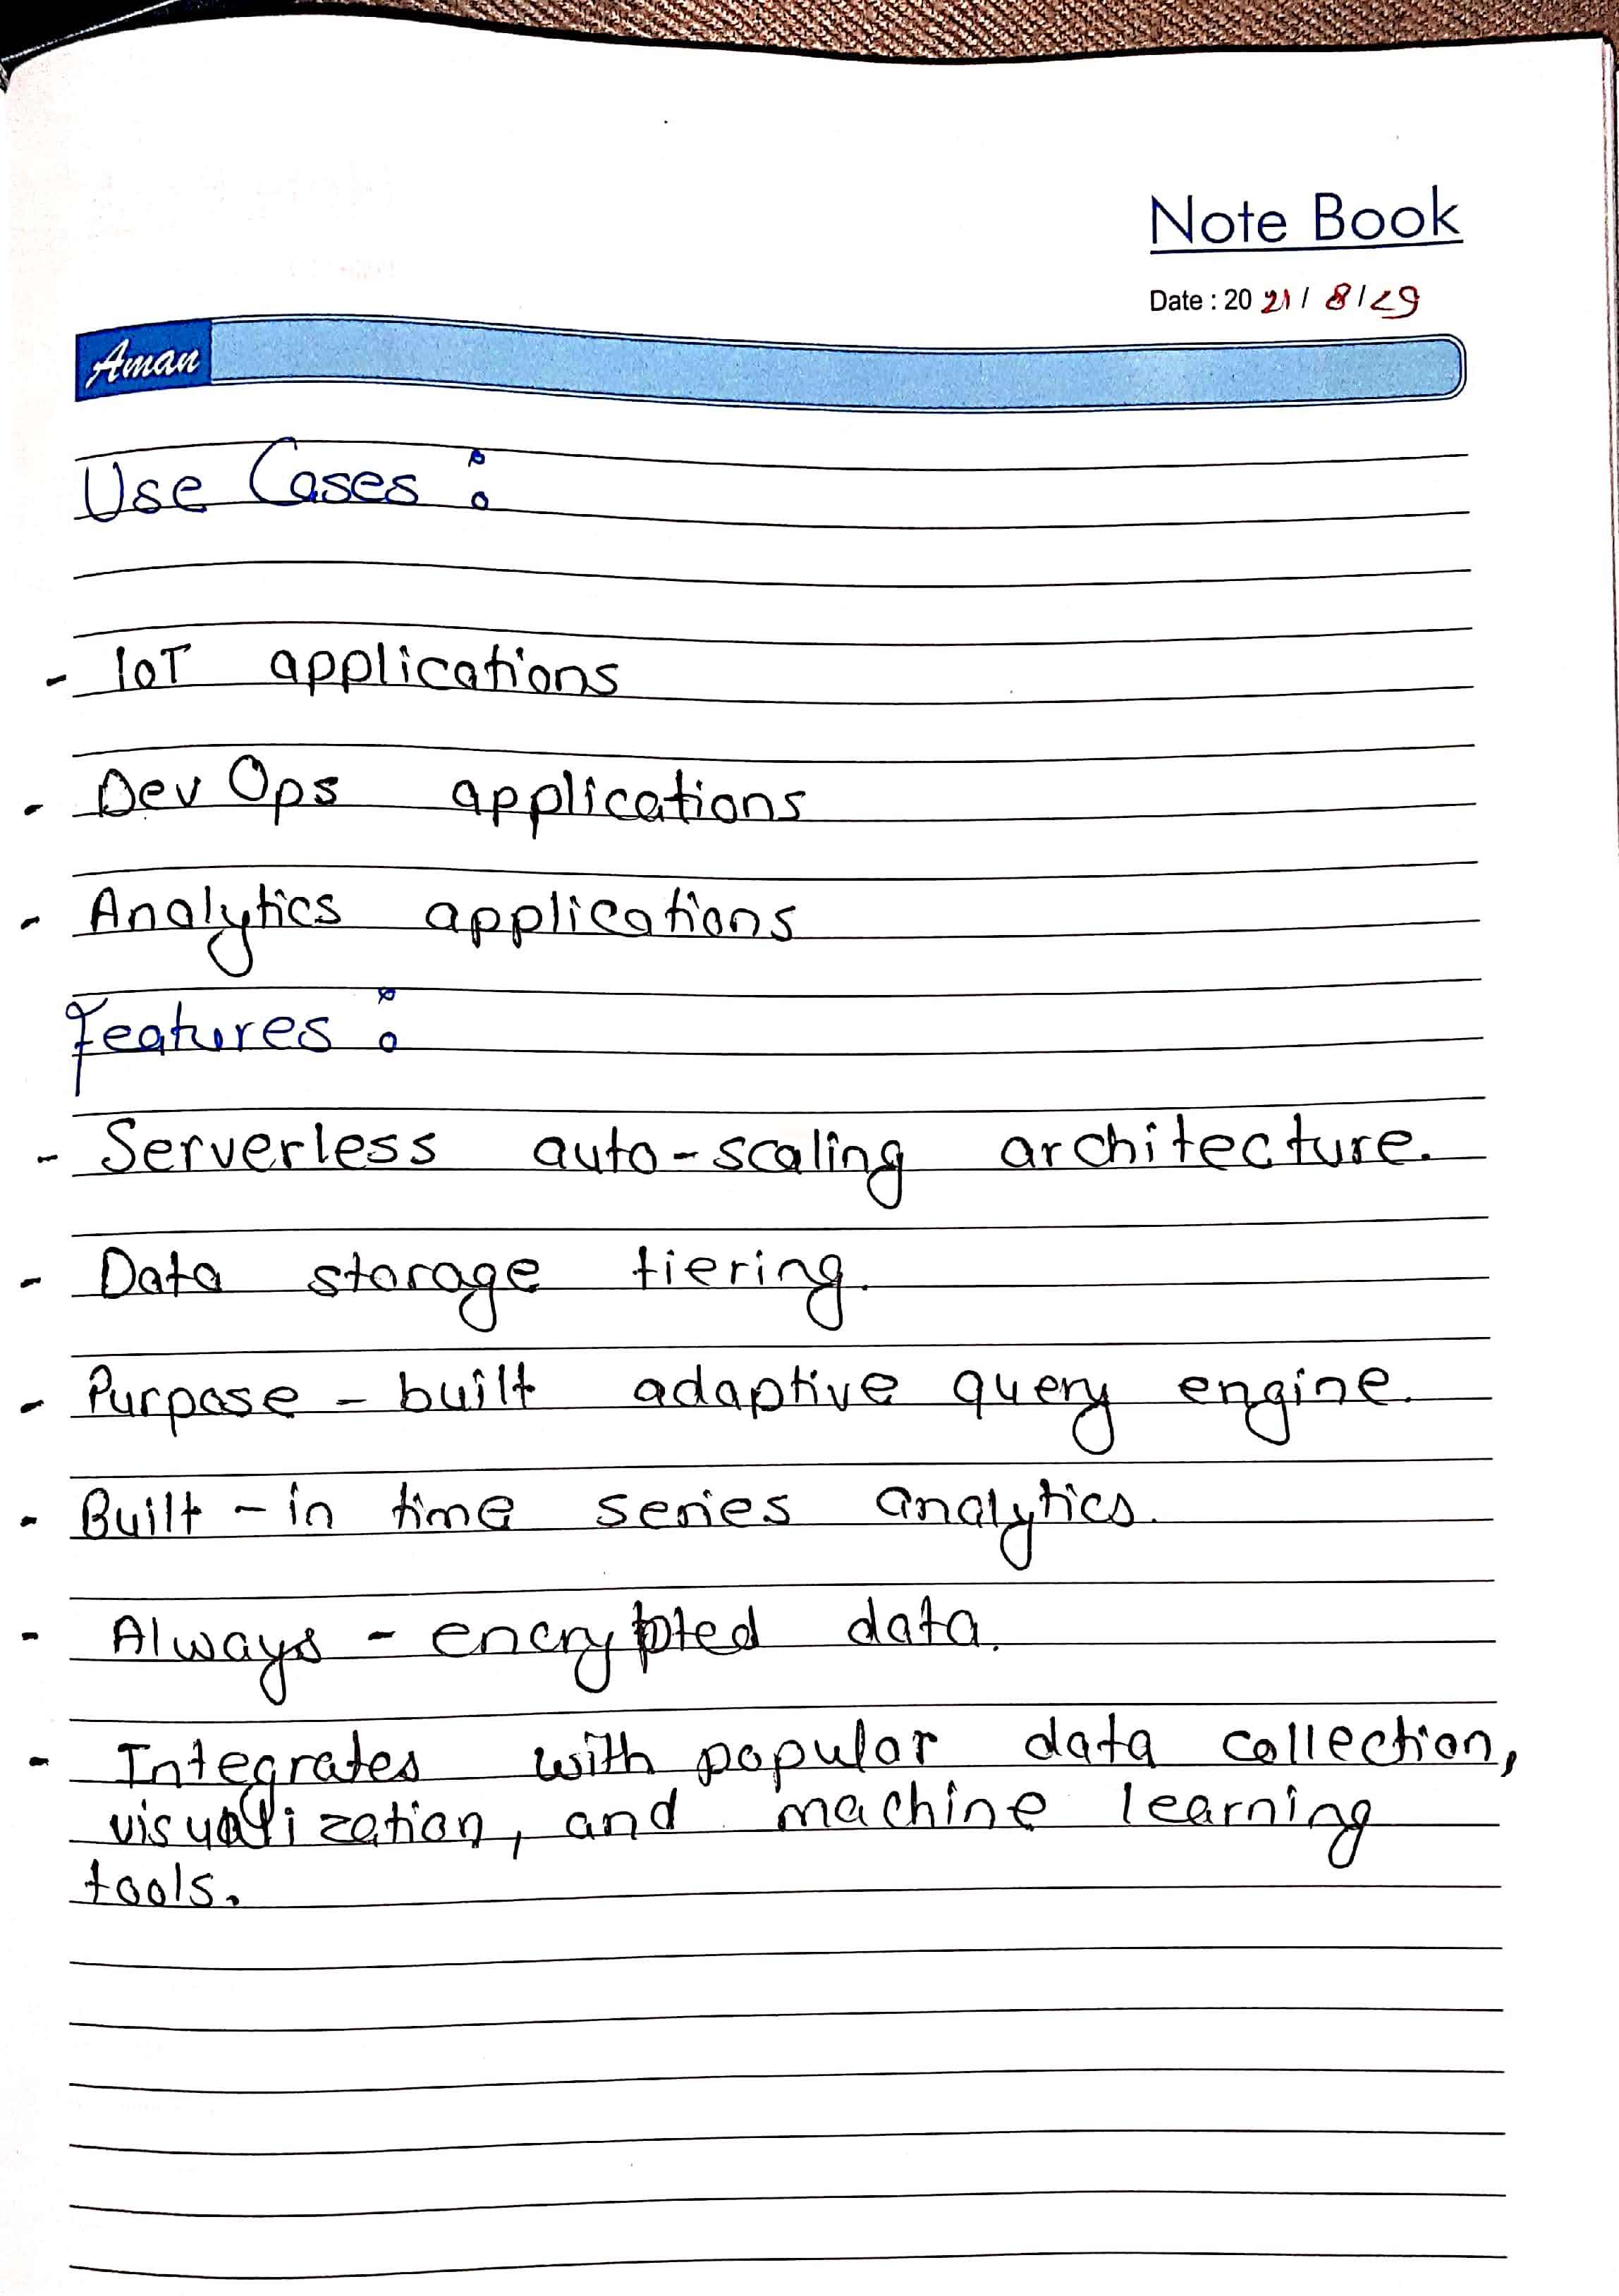 Note Book
Date : 20 21 / 8 / 29
Aman
Use Cases :
- IoT applications
- DevOps applications
- Analytics applications
Features :
- Serverless auto-scaling architecture.
- Data storage tiering.
- Purpose-built adaptive query engine.
- Built-in time series analytics.
- Always-encrypted data.
- Integrates with popular data collection,
visualization, and machine learning
tools.